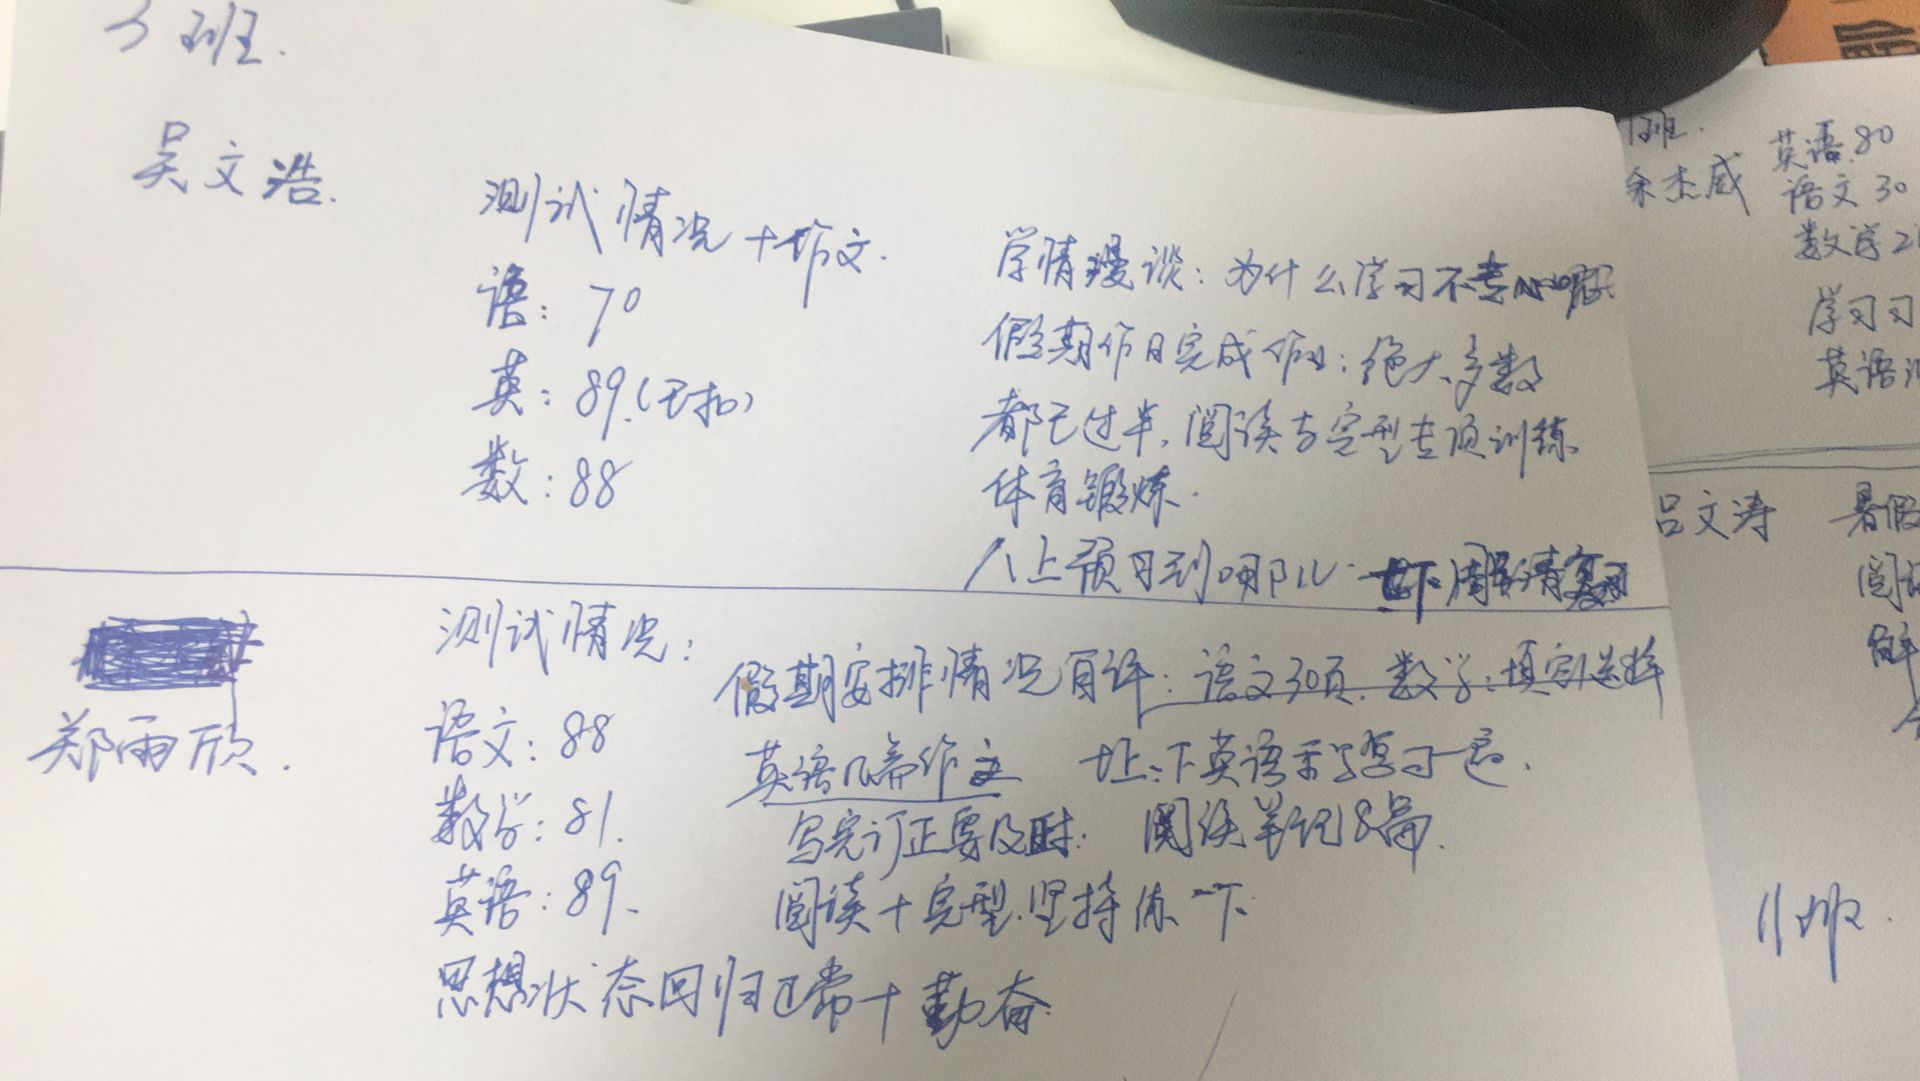 3班.
吴文浩.
测试情况+作文.
语:70
英:89.(无扣)
数:88
学情漫谈:为什么学习不专心
假期作日完成作业:绝大多数
都已过半,阅读与完型专项训练
体育锻炼.
八上预习到哪儿.下周
郑雨欣.
测试情况:
语文:88
数学:81.
英语:89.
思想状态回归正常+勤奋
假期安排情况:语文30页.数学:填空选择
英语几篇作文
写完订正要及时: 阅读笔记8篇.
阅读+完型.坚持练一下
班.
余杰威
英语.80
语文30
数学2
学习习
英语
吕文涛
暑假
阅读
11班.